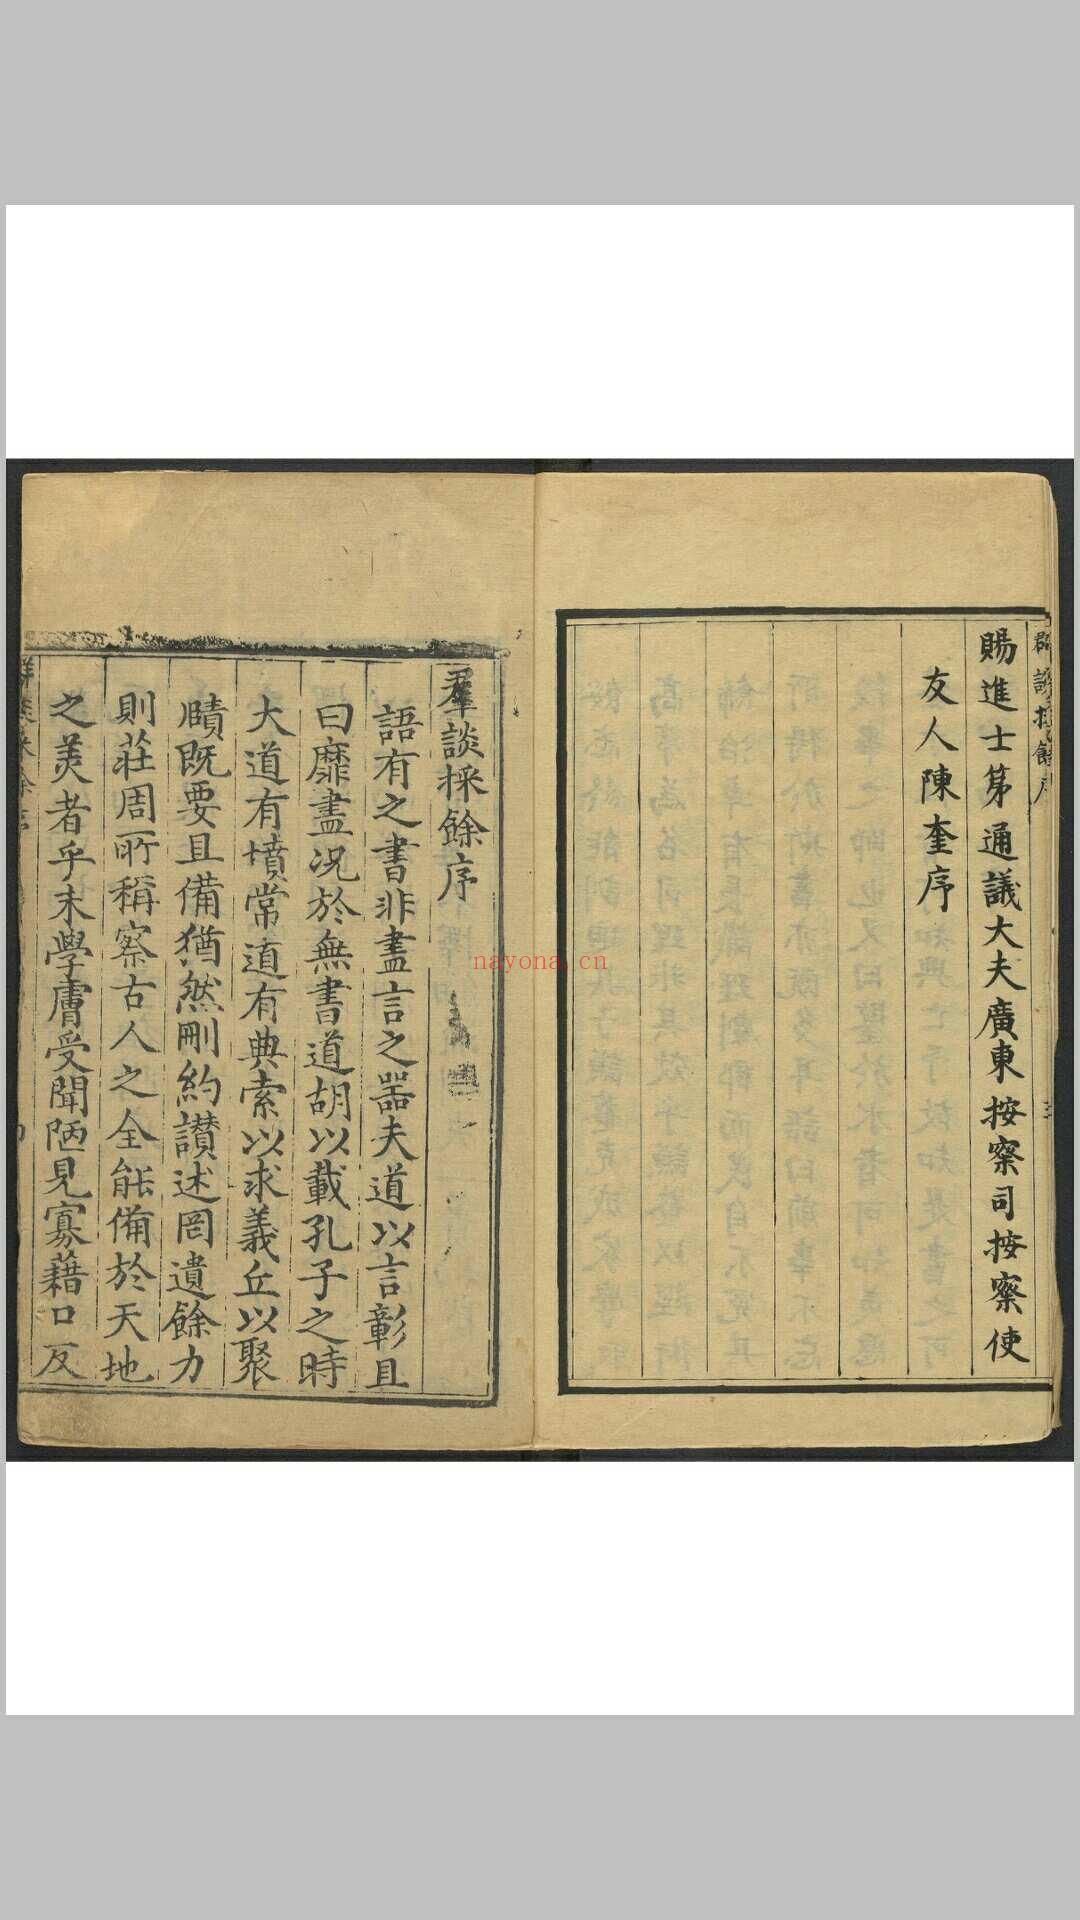 群談採餘序
賜進士第通議大夫廣東按察司按察使
友人陳奎序
羣談採餘序
語有之書非盡言之器夫道以言彰且
曰靡盡况於無書道胡以載孔子之時
大道有墳常道有典索以求義丘以聚
賾既要且備猶然刪約讃述罔遺餘力
則莊周所稱察古人之全能備於天地
之美者乎末學膚受聞陋見寡藉口反
nayona.cn